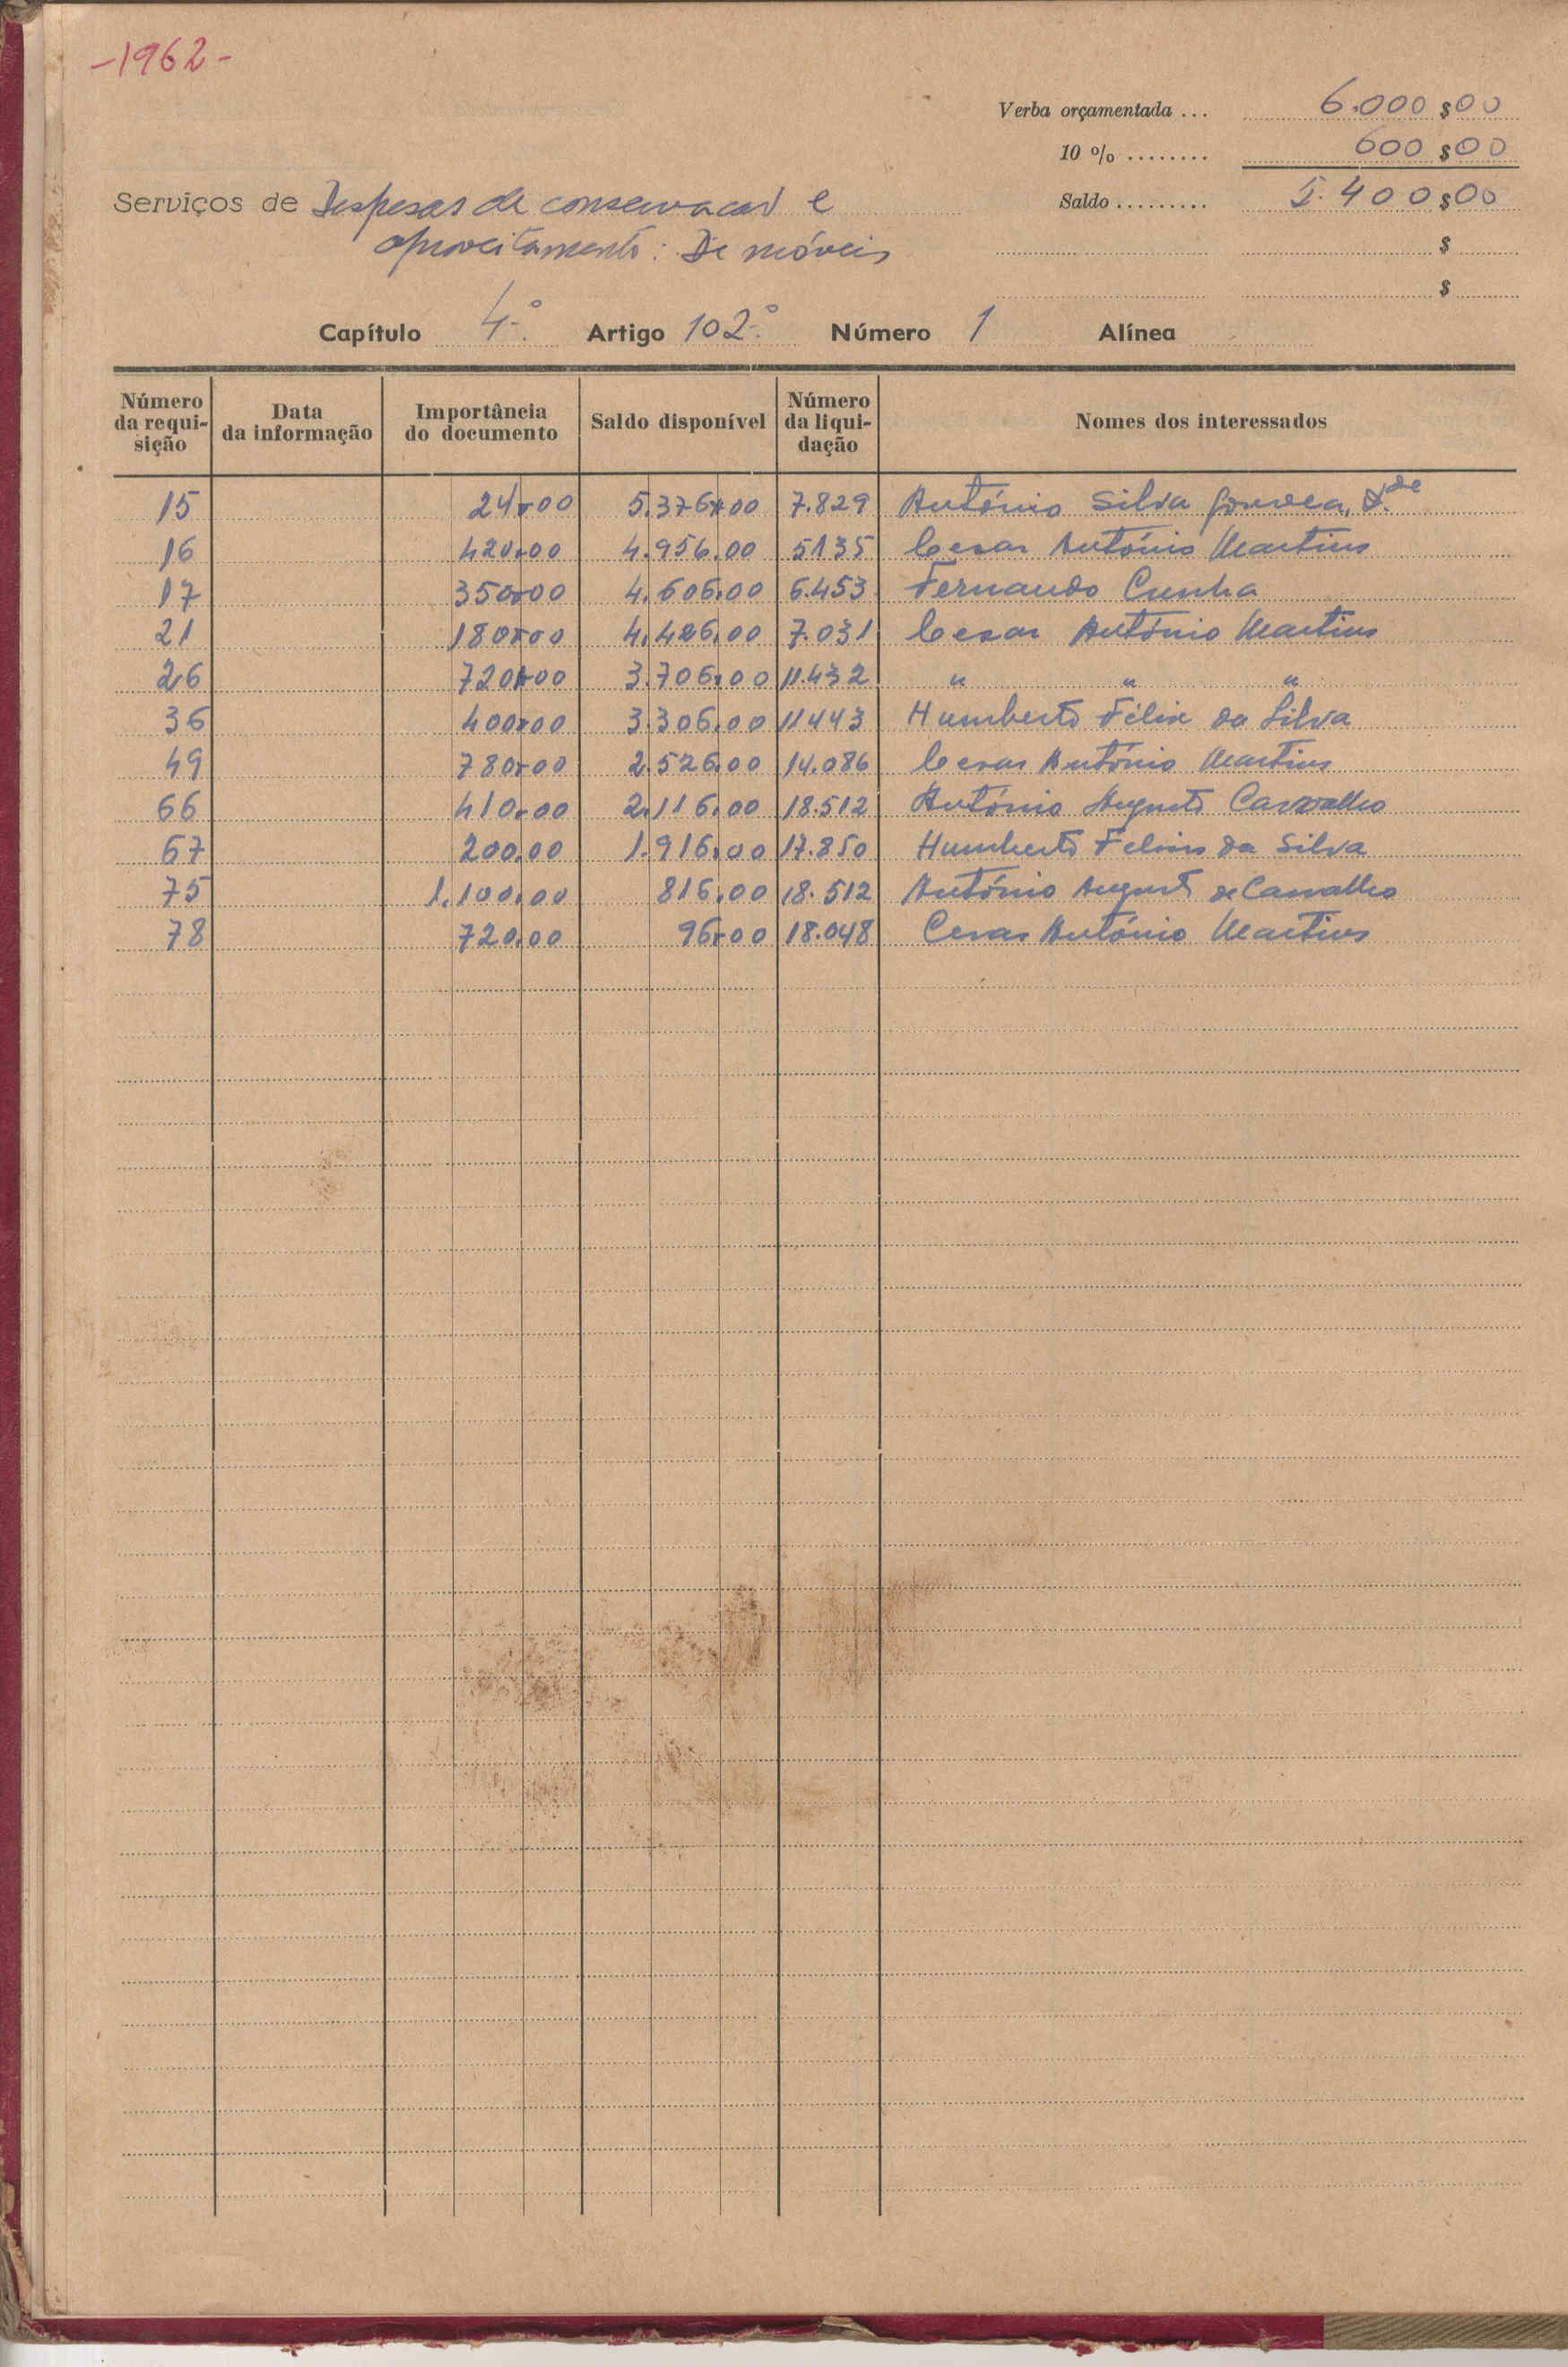 -1962-
Verba orçamentada ... 6.000$00
10 % ........ 600$00
Serviços de Despesas de conservação e Saldo ......... 5.400$00
aproveitamento: De móveis $
$
Capítulo 4.º Artigo 102.º Número 1 Alínea
Número da requi-sição Data da informação Importância do documento Saldo disponível Número da liqui-dação Nomes dos interessados
15 24,00 5.376,00 7.829 António Silva Gouveia, L.de
16 420,00 4.956,00 5135 Cesar António Martins
17 350,00 4.606,00 6.453 Fernando Cunha
21 180,00 4.426,00 7.031 Cesar António Martins
26 720,00 3.706,00 11.432 " " "
36 400,00 3.306,00 11443 Humberto Félix da Silva
49 780,00 2.526,00 14.086 Cesar António Martins
66 410,00 2.116,00 18.512 António Augusto Carvalho
67 200,00 1.916,00 17.850 Humberto Felix da Silva
75 1.100,00 816,00 18.512 António Augusto de Carvalho
78 720,00 96,00 18.048 Cesar António Martins